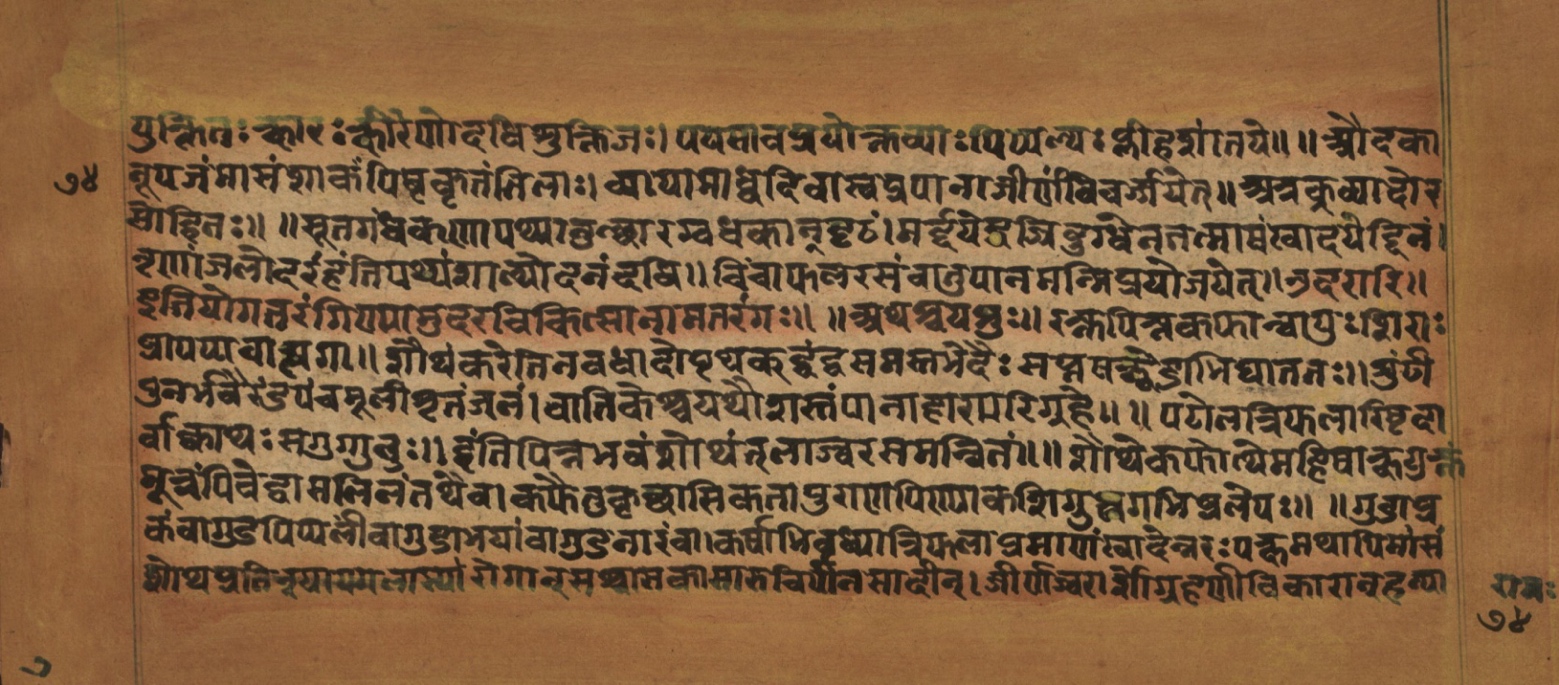 युक्तितः क्षारः क्षीरेणोदधिशुक्तिजः। पयसावप्रयोक्तव्याः पिप्पल्यः प्लीहशांतये॥ ॥ औदका
७४
नूपजंमासंशाकंपिष्टकृतंतिलाः। व्यायामाध्वदिवास्वप्नपानाजीर्णंविवर्जयेत्॥ अत्रक्रव्यादोर
सोद्दितः॥ ॥ सूतगंधकणापथ्यातुत्थारग्वधकान्दृढं। मर्दयेद्वज्रिदुग्धेनतन्माषंखादयेद्दिनं।
नृणांजलोदरंहंतिपथ्यंशाल्योदनंदधि॥ चिंचाफलरसंवानुपानमस्मिप्रयोजयेत्॥ उदरारि॥
इतियोगतरंगिण्यामुदरचिकित्सानामतरंगः॥ ॥ अथश्वयथुः॥ रक्तपित्तकफान्वायुः शिराः
प्राप्यबाह्यगा॥ शोथंकरोतिनवधादोषैपृथक्द्वंद्वसमस्तभेदैः सप्तषक्ष्वेडाभिघाततः॥ शुंठी
पुनर्भवैरंडपंचमूलीशृतंजलं। वातिकेश्वयथौशस्तंपानाहारपरिग्रहे॥ ॥ पटोलत्रिफलारिष्टदा
र्वीक्वाथः सगुग्गुलुः॥ हंतिपित्तभवंशोथंतृष्णाज्वरसमन्वितं॥ ॥ शोथेकफोत्थेमहिषाक्षयुक्तं
मूत्रंपिबेद्वामलिलंतथैव। कफेतुकृष्णासिकतापुराणपिण्याकशिग्रुत्वगभिप्रलेपः॥ ॥ गुडार्द्र
कंवागुडपिप्पलींवागुडाभयांवागुडनागरंवा। कर्षाभिवृध्यात्रिफलाप्रमाणंखादेन्नरः पक्षमथापिमासं
शोथप्रतिश्यायगलास्यरोगान्सश्वासकासारुचिपीनसादीन्। जीर्णज्वरार्शोग्रहणीविकारान्हन्या
रामः
७४